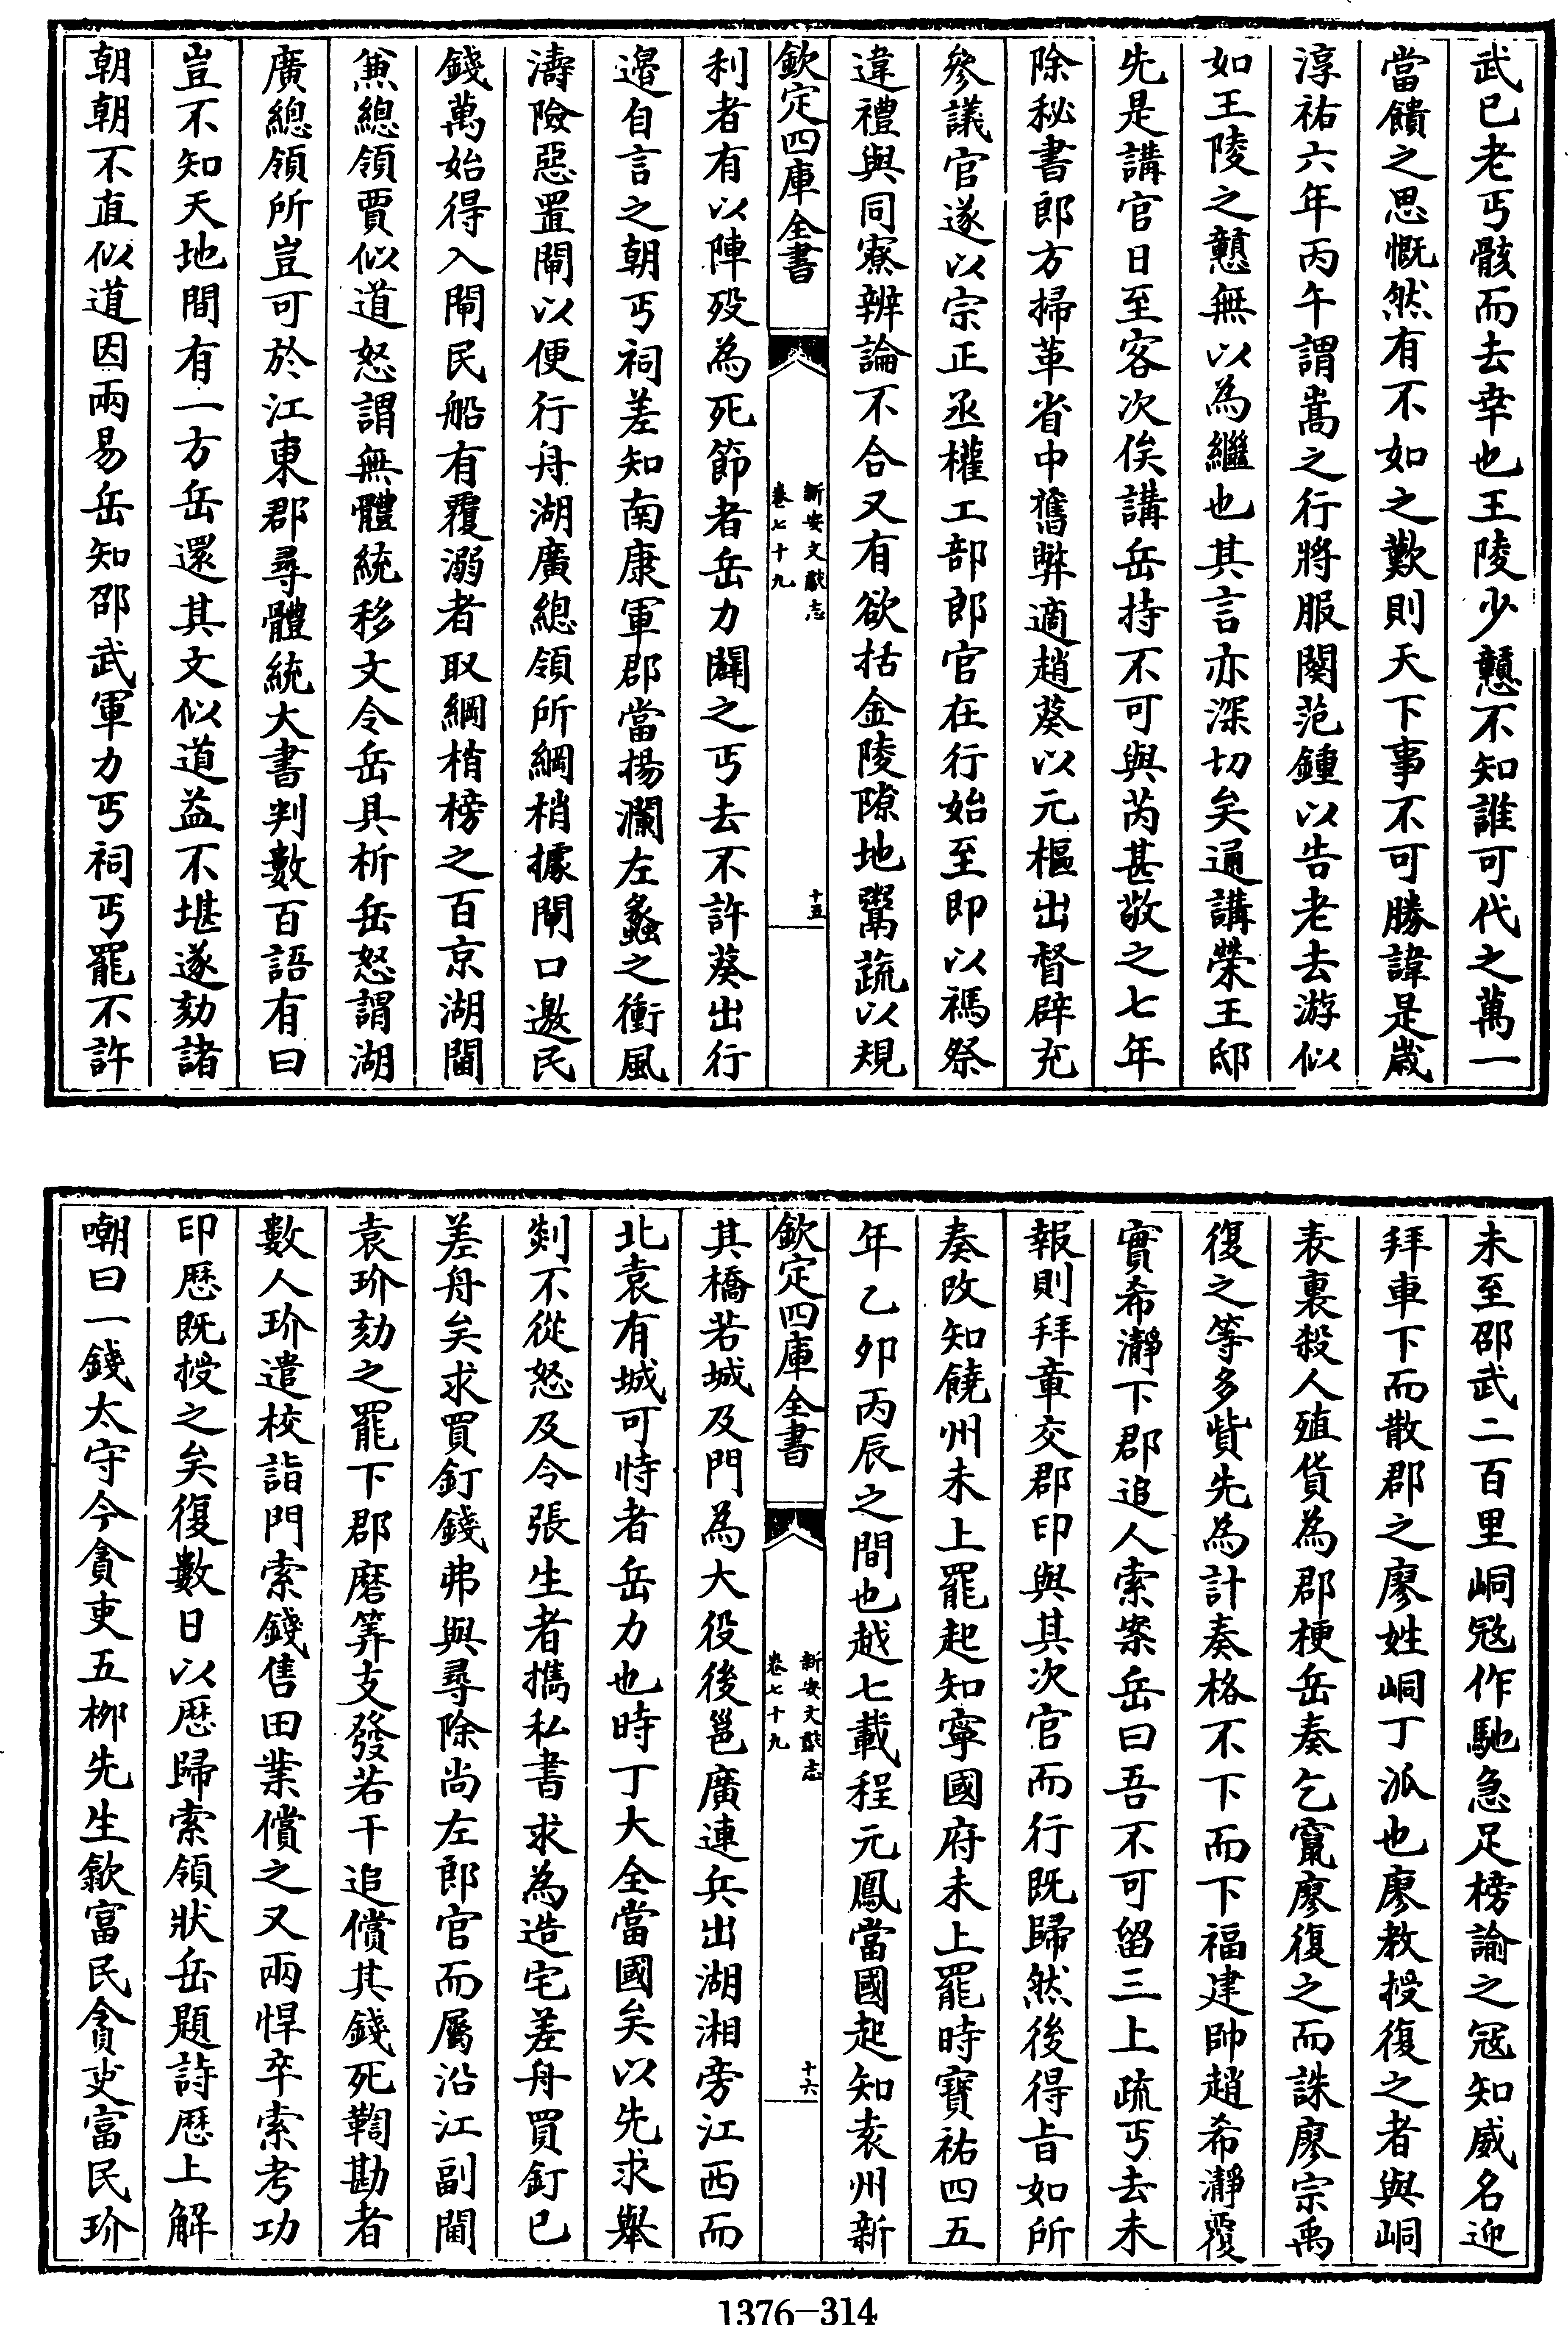 武已老丐骸而去幸也王陵少戇不知誰可代之萬一
當饋之思慨然有不如之歎則天下事不可勝諱是歳
淳祐六年丙午謂嵩之行將服闋范鍾以告老去游似
如王陵之戇無以為繼也其言亦深切矣通講榮王邸
先是講官日至客次俟講岳持不可與芮甚敬之七年
除秘書郎方掃革省中舊弊適趙葵以元樞出督辟充
參議官遂以宗正丞權工部郎官在行始至即以禡祭
違禮與同寮辨論不合又有欲括金陵隙地鬻蔬以規
欽定四庫全書
新安文獻志
卷七十九
十五
利者有以陣歿為死節者岳力闢之丐去不許葵出行
邉自言之朝丐祠差知南康軍郡當揚瀾左蠡之衝風
濤險惡置閘以便行舟湖廣總領所綱梢據閘口邀民
錢萬始得入閘民船有覆溺者取綱梢榜之百京湖閫
兼總領賈似道怒謂無體統移文令岳具析岳怒謂湖
廣總領所豈可於江東郡尋體統大書判數百語有曰
豈不知天地間有一方岳還其文似道益不堪遂劾諸
朝朝不直似道因兩易岳知邵武軍力丐祠丐罷不許
未至邵武二百里峒冦作馳急足榜諭之冦知威名迎
拜車下而散郡之廖姓峒丁派也廖教授復之者與峒
表裏殺人殖貨為郡梗岳奏乞竄廖復之而誅廖宗禹
復之等多貲先為計奏格不下而下福建帥趙希瀞覆
實希瀞下郡追人索案岳曰吾不可留三上疏丐去未
報則拜章交郡印與其次官而行既歸然後得旨如所
奏改知饒州未上罷起知寧國府未上罷時寶祐四五
年乙夘丙辰之間也越七載程元鳳當國起知袁州新
欽定四庫全書
新安文獻志
卷七十九
十六
其橋若城及門為大役後邕廣連兵出湖湘旁江西而
北袁有城可恃者岳力也時丁大全當國矣以先求舉
剡不從怒及令張生者攜私書求為造宅差舟買釘已
差舟矣求買釘錢弗與尋除尚左郎官而屬沿江副閫
袁玠劾之罷下郡磨筭支發若干追償其錢死鞫勘者
數人玠遣校詣門索錢售田業償之又兩悍卒索考功
印歴既授之矣復數日以歴歸索領狀岳題詩歴上解
嘲曰一錢太守今貪吏五柳先生歙富民貪吏富民玠
1376-314